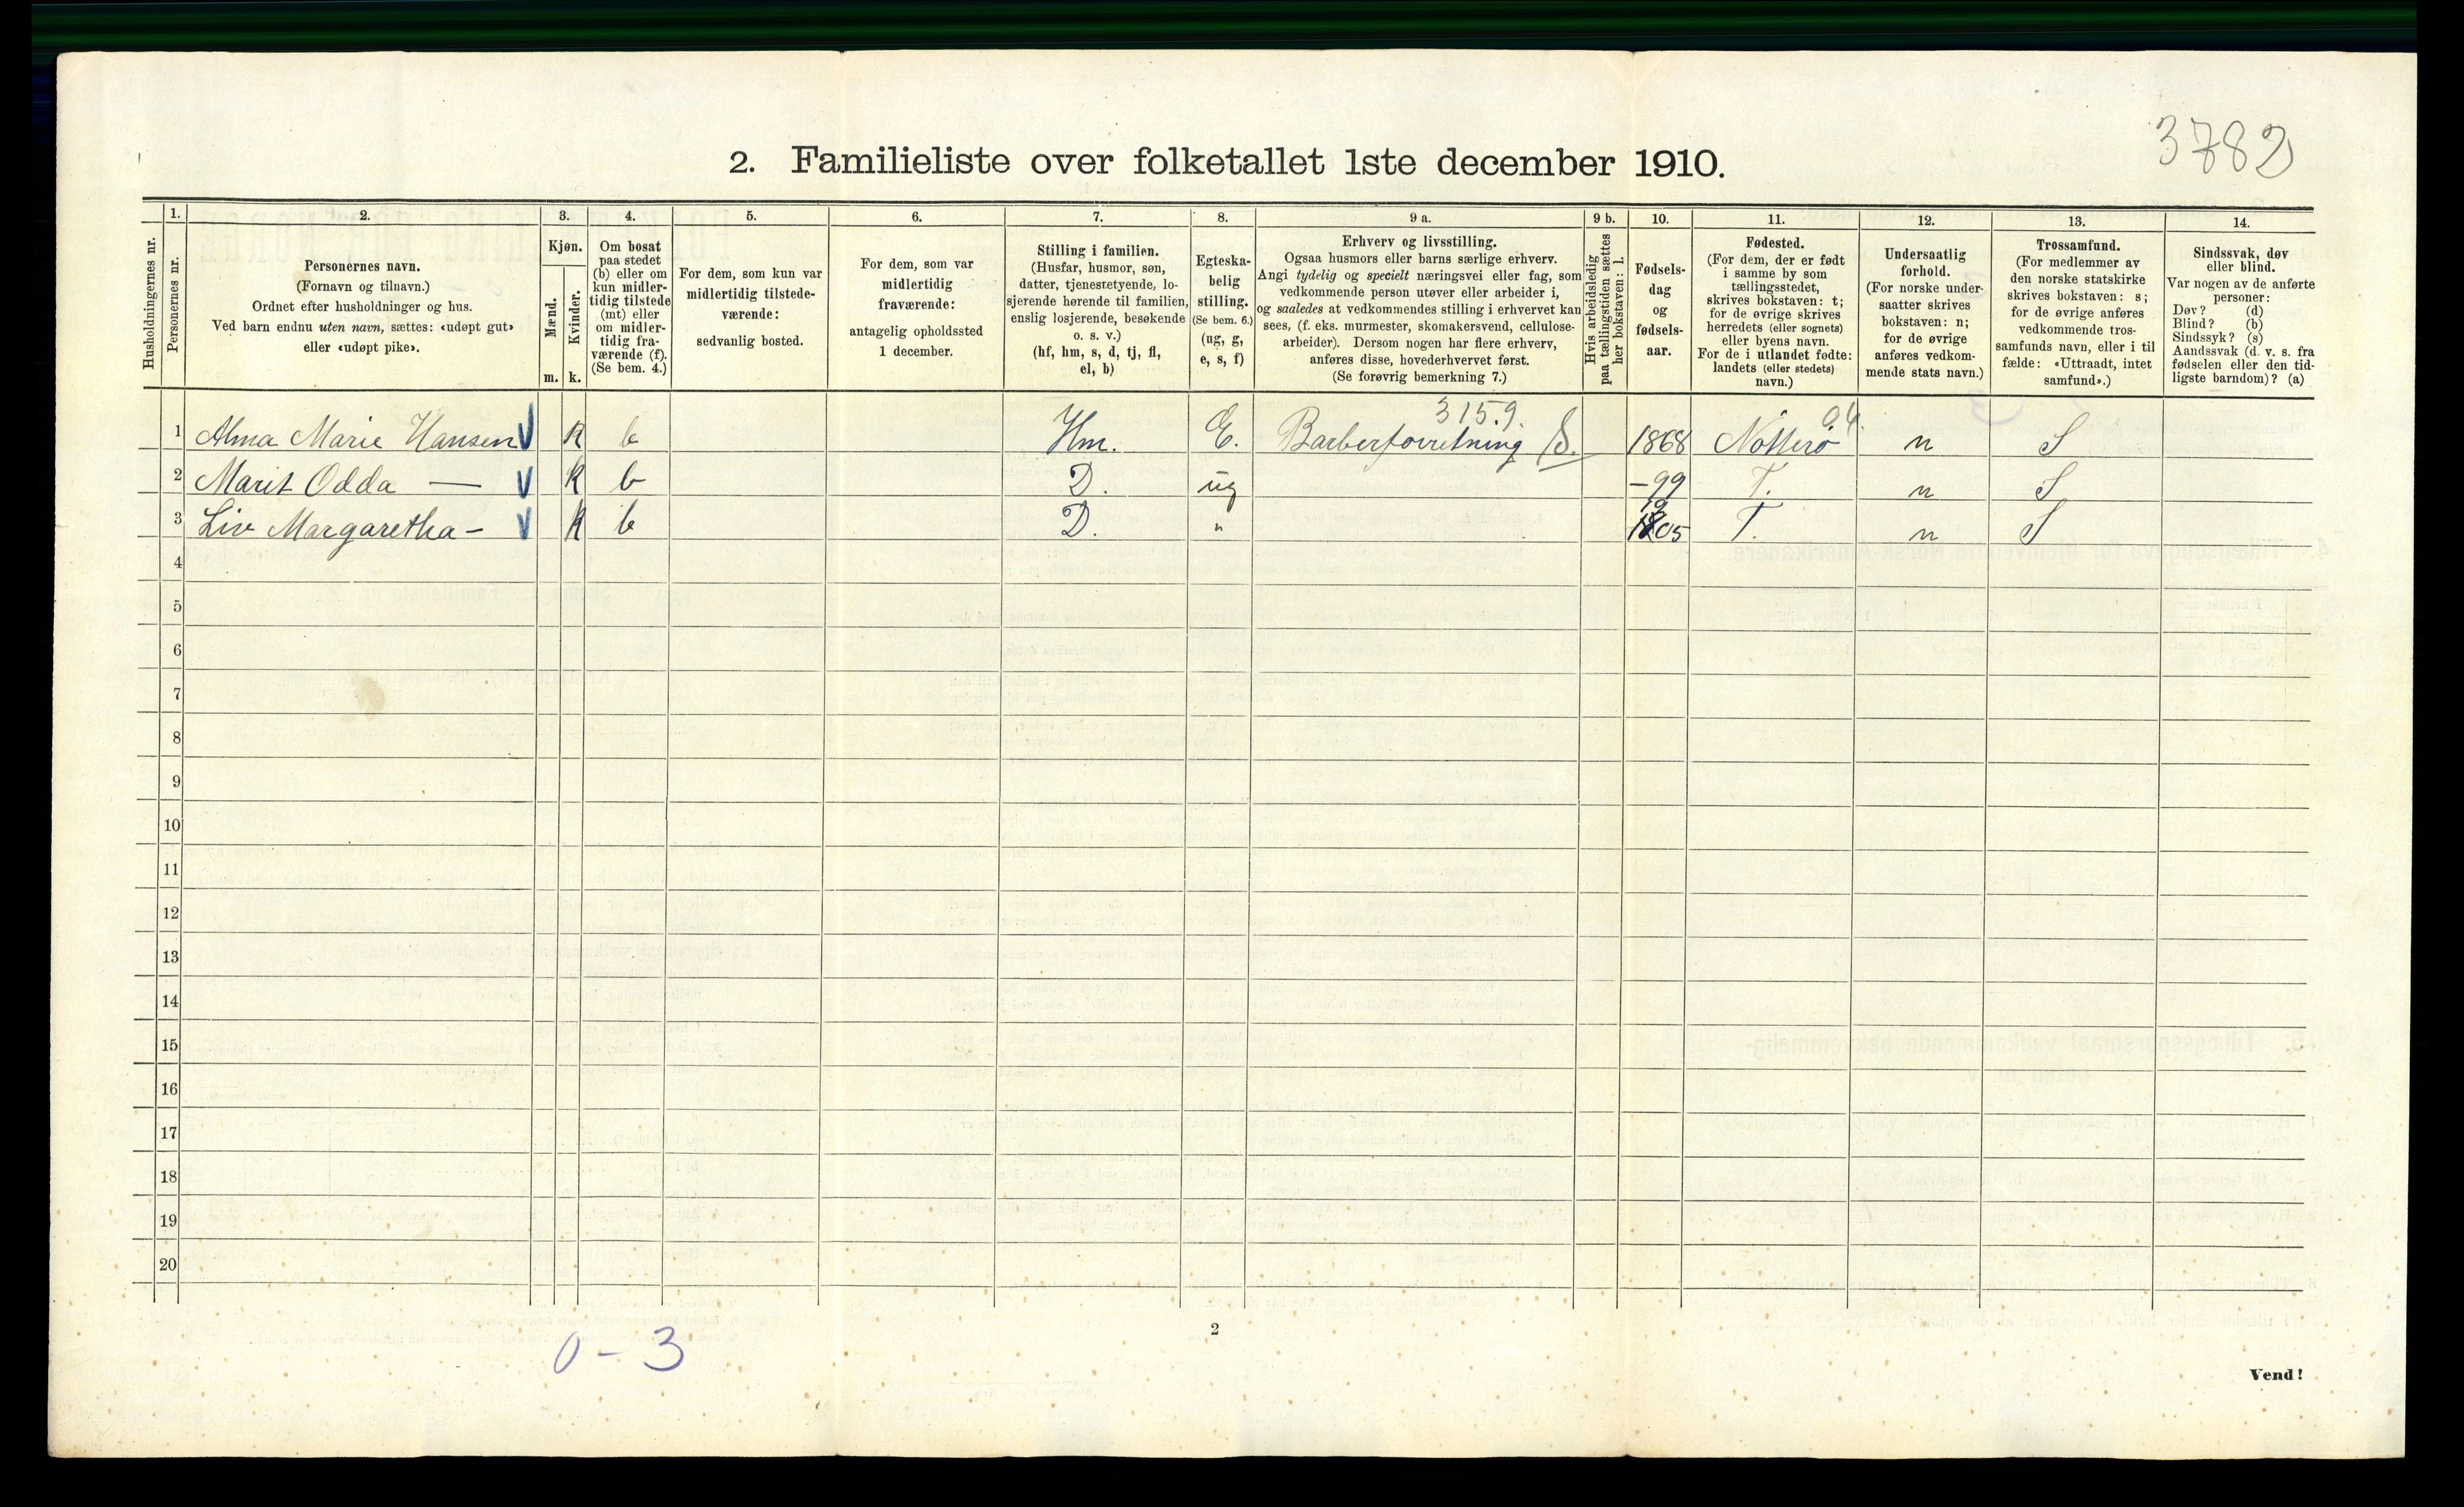 3782
2. Familieliste over folketallet 1ste december 1910.
Husholdningernes nr.
1.
Personernes nr.
2.
Personernes navn.
(Fornavn og tilnavn.)
Ordnet efter husholdninger og hus.
Ved barn endnu uten navn, sættes: «udøpt gut»
eller «udøpt pike».
3.
Kjøn.
Mænd.
Kvinder.
m. k.
4.
Om bosat
paa stedet
(b) eller om
kun midler-
tidig tilstede
(mt) eller
om midler-
tidig fra-
værende (f).
(Se bem. 4.)
5.
For dem, som kun var
midlertidig tilstede-
værende:
sedvanlig bosted.
6.
For dem, som var
midlertidig
fraværende:
antagelig opholdssted
1 december.
7.
Stilling i familien.
(Husfar, husmor, søn,
datter, tjenestetyende, lo-
sjerende hørende til familien,
enslig losjerende, besøkende
o. s. v.)
(hf, hm, s, d, tj, fl,
el, b)
8.
Egteska-
belig
stilling.
(Se bem. 6.)
(ug, g,
e, s, f)
9 a.
Erhverv og livsstilling.
Ogsaa husmors eller barns særlige erhverv.
Angi tydelig og specielt næringsvei eller fag, som
vedkommende person utøver eller arbeider i,
og saaledes at vedkommendes stilling i erhvervet kan
sees, (f. eks. murmester, skomakersvend, cellulose-
arbeider). Dersom nogen har flere erhverv,
anføres disse, hovederhvervet først.
(Se forøvrig bemerkning 7.)
9 b.
Hvis arbeidsledig
paa tællingstiden sættes
her bokstaven: l.
10.
Fødsels-
dag
og
fødsels-
aar.
11.
Fødested.
(For dem, der er født
i samme by som
tællingsstedet,
skrives bokstaven: t;
for de øvrige skrives
herredets (eller sognets)
eller byens navn.
For de i utlandet fødte:
landets (eller stedets)
navn.)
12.
Undersaatlig
forhold.
(For norske under-
saatter skrives
bokstaven: n;
for de øvrige
anføres vedkom-
mende stats navn.)
13.
Trossamfund.
(For medlemmer av
den norske statskirke
skrives bokstaven: s;
for de øvrige anføres
vedkommende tros-
samfunds navn, eller i til
fælde: «Uttraadt, intet
samfund».)
14.
Sindssvak, døv
eller blind.
Var nogen av de anførte
personer:
Døv? (d)
Blind? (b)
Sindssyk? (s)
Aandssvak (d. v. s. fra
fødselen eller den tid-
ligste barndom)? (a)
3159. 04.
1 Alma Marie Hansen V k b Hm. E. Barberforretning S. 1868 Nötterö n S
2 Marit Odda — V k b D. ug -99 T. n S
3 Liv Margaretha - V k b D. " 1905 T. n S
4
5
6
7
8
9
10
11
12
13
14
15
16
17
18
19
20
0 - 3
2
Vend!